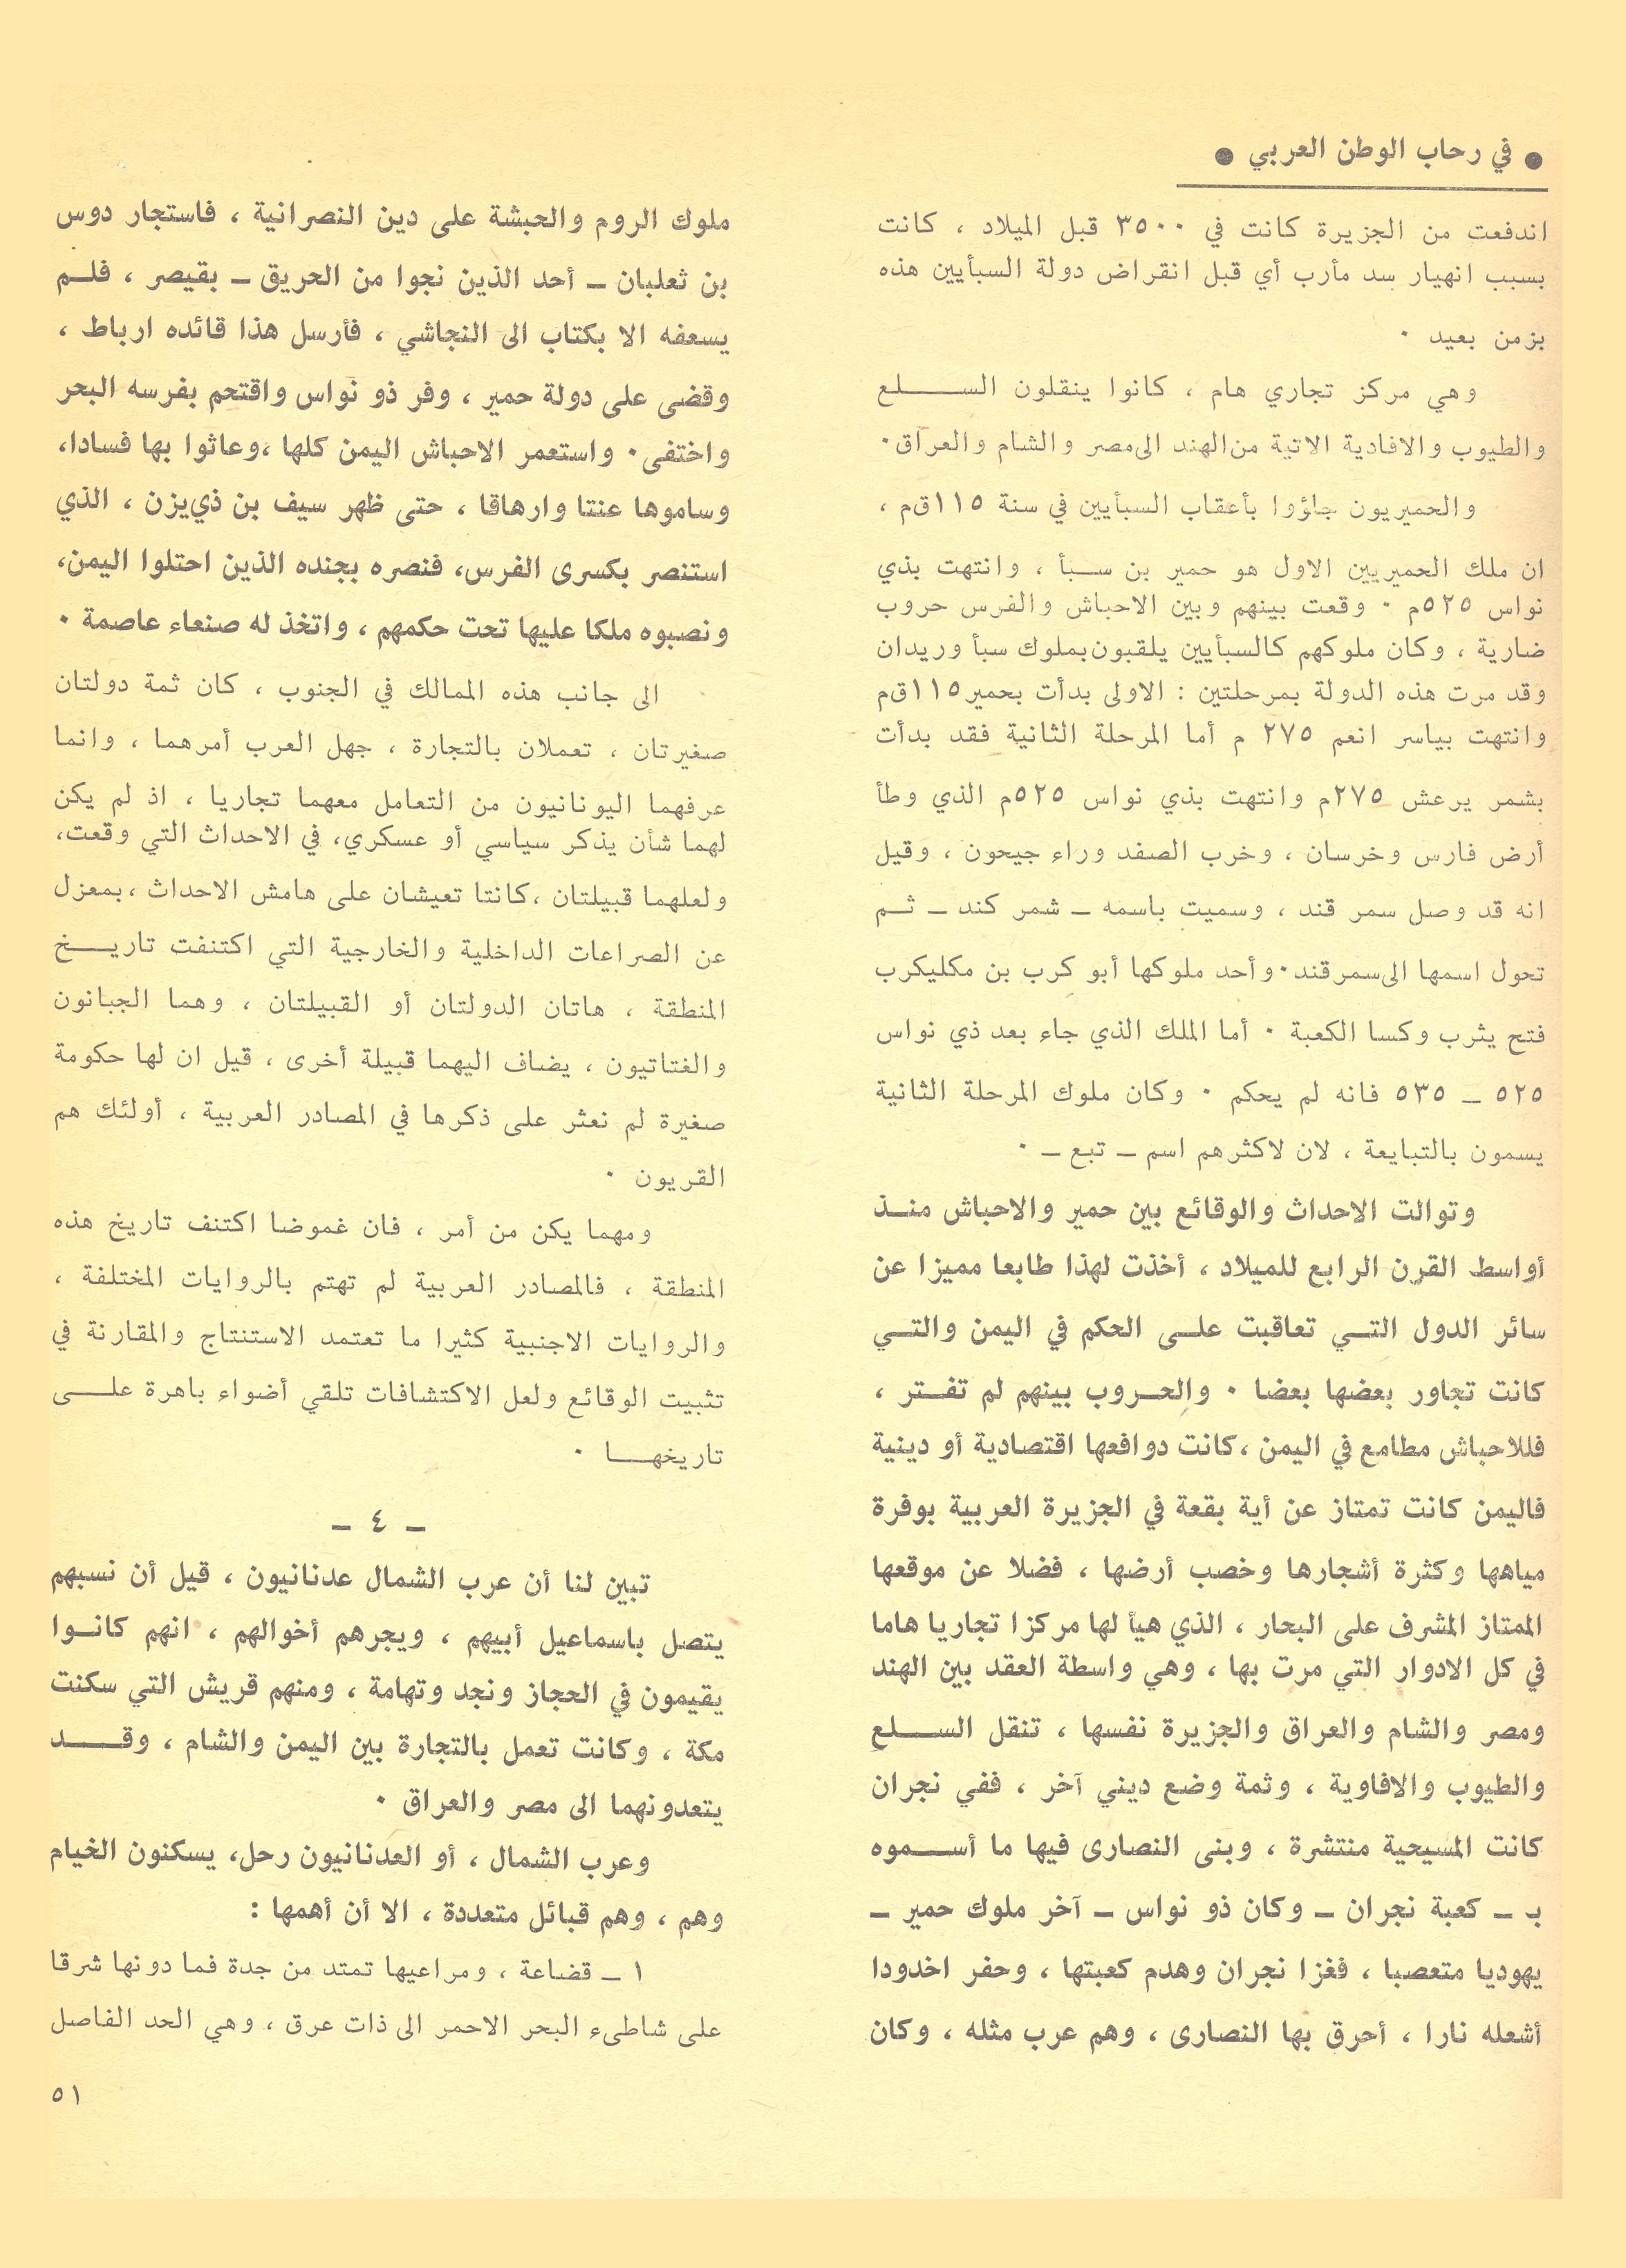 ● في رحاب الوطن العربي ●
اندفعت من الجزيرة كانت في ٣٥٠٠ قبل الميلاد ، كانت
بسبب انهيار سد مأرب أي قبل انقراض دولة السبأيين هذه
بزمن بعيد ٠
وهي مركز تجاري هام ، كانوا ينقلون الســــلع
والطيوب والافادية الاتية من الهند الى مصر والشام والعراق ٠
والحميريون جاؤوا بأعقاب السبأيين في سنة ١١٥ق٠م ،
ان ملك الحميريين الاول هو حمير بن سـبأ ، وانتهت بذي
نواس ٥٢٥م ٠ وقعت بينهم وبين الاحباش والفرس حروب
ضارية ، وكان ملوكهم كالسبأيين يلقبون بملوك سبأ وريدان
وقد مرت هذه الدولة بمرحلتين : الاولى بدأت بحمير ١١٥ق٠م
وانتهت بياسر انعم ٢٧٥ م أما المرحلة الثانية فقد بدأت
بشمر يرعش ٢٧٥م وانتهت بذي نواس ٥٢٥م الذي وطأ
أرض فارس وخرسان ، وخرب الصفد وراء جيحون ، وقيل
انه قد وصل سمر قند ، وسميت باسمه ــ شمر كند ــ ثـم
تحول اسمها الى سمرقند ٠ وأحد ملوكها أبو كرب بن مكليكرب
فتح يثرب وكسا الكعبة ٠ أما الملك الذي جاء بعد ذي نواس
٥٢٥ ــ ٥٣٥ فانه لم يحكم ٠ وكان ملوك المرحلة الثانية
يسمون بالتبايعة ، لان لاكثرهم اسم ــ تبع ــ ٠
وتوالت الاحداث والوقائع بين حمير والاحباش منـذ
أواسط القرن الرابع للميلاد ، أخذت لهذا طابعا مميزا عن
سائر الدول التـي تعاقبت علـى الحكم في اليمن والتـي
كانت تجاور بعضها بعضا ٠ والحـروب بينهم لم تفـتر ،
فللاحباش مطامع في اليمن ، كانت دوافعها اقتصادية أو دينية
فاليمن كانت تمتاز عن أية بقعة في الجزيرة العربية بوفرة
مياهها وكثرة أشجارها وخصب أرضها ، فضلا عن موقعها
الممتاز المشرف على البحار ، الذي هيأ لها مركزا تجاريا هاما
في كل الادوار التي مرت بها ، وهي واسطة العقد بين الهند
ومصر والشام والعراق والجزيرة نفسها ، تنقل الســـلع
والطيوب والافاوية ، وثمة وضع ديني آخر ، ففي نجران
كانت المسيحية منتشرة ، وبنى النصارى فيها ما أســموه
بـ ــ كعبة نجران ــ وكان ذو نواس ــ آخر ملوك حمير ــ
يهوديا متعصبا ، فغزا نجران وهدم كعبتها ، وحفر اخدودا
أشعله نارا ، أحرق بها النصارى ، وهم عرب مثله ، وكان
ملوك الروم والحبشة على دين النصرانية ، فاستجار دوس
بن ثعلبان ــ أحد الذين نجوا من الحريق ــ بقيصر ، فلـم
يسعفه الا بكتاب الى النجاشي ، فأرسل هذا قائده ارباط ،
وقضى على دولة حمير ، وفر ذو نواس واقتحم بفرسه البحر
واختفى ٠ واستعمر الاحباش اليمن كلها ،وعاثوا بها فسادا،
وساموها عنتا وارهاقا ، حتى ظهر سيف بن ذي يزن ، الذي
استنصر بكسرى الفرس، فنصره بجنده الذين احتلوا اليمن،
ونصبوه ملكا عليها تحت حكمهم ، واتخذ له صنعاء عاصمة ٠
الى جانب هذه الممالك في الجنوب ، كان ثمة دولتان
صغيرتان ، تعملان بالتجارة ، جهل العرب أمرهما ، وانما
عرفهما اليونانيون من التعامل معهما تجاريا ، اذ لم يكن
لهما شأن يذكر سياسي أو عسكري، في الاحداث التي وقعت،
ولعلهما قبيلتان ،كانتا تعيشان على هامش الاحداث ،بمعزل
عن الصراعات الداخلية والخارجية التي اكتنفت تاريــخ
المنطقة ، هاتان الدولتان أو القبيلتان ، وهما الجبانون
والغتاتيون ، يضاف اليهما قبيلة أخرى ، قيل ان لها حكومة
صغيرة لم نعثر على ذكرها في المصادر العربية ، أولئك هم
القريون ٠
ومهما يكن من أمر ، فان غموضا اكتنف تاريخ هذه
المنطقة ، فالمصادر العربية لم تهتم بالروايات المختلفة ،
والروايات الاجنبية كثيرا ما تعتمد الاستنتاج والمقارنة في
تثبيت الوقائع ولعل الاكتشافات تلقي أضواء باهرة علــى
تاريخهــا ٠
ــ ٤ ــ
تبين لنا أن عرب الشمال عدنانيون ، قيل أن نسبهم
يتصل باسماعيل أبيهم ، ويجرهم أخوالهم ، انهم كانـوا
يقيمون في الحجاز ونجد وتهامة ، ومنهم قريش التي سكنت
مكة ، وكانت تعمل بالتجارة بين اليمن والشام ، وقـــد
يتعدونهما الى مصر والعراق ٠
وعرب الشمال ، أو العدنانيون رحل، يسكنون الخيام
وهم ، وهم قبائل متعددة ، الا أن أهمها :
١ ــ قضاعة ، ومراعيها تمتد من جدة فما دونها شرقا
على شاطىء البحر الاحمر الى ذات عرق ، وهي الحد الفاصل
٥١